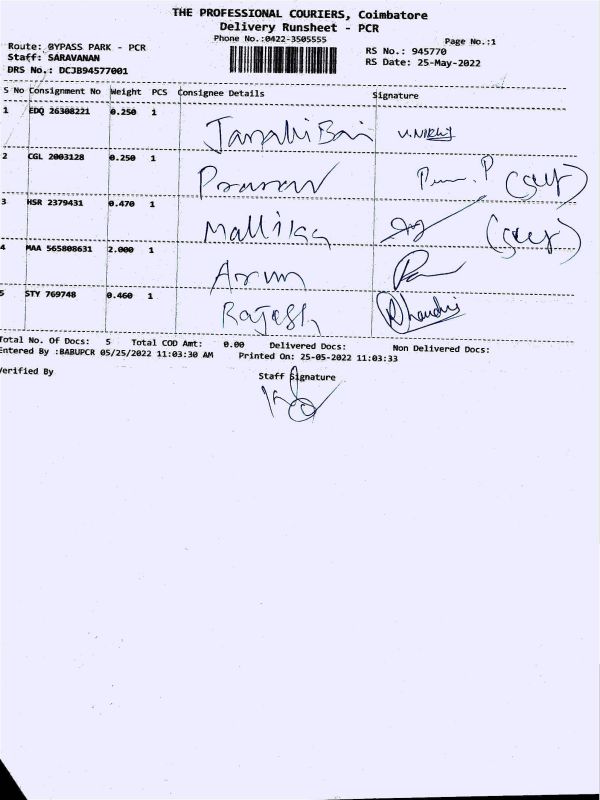 THE PROFESSIONAL COURIERS, Coimbatore
Delivery Runsheet - PCR
Phone No.:0422-3505555
Page No.:1
Route: BYPASS PARK - PCR
RS No.: 945770
Staff: SARAVANAN
RS Date: 25-May-2022
DRS No.: DCJB94577001
S No Consignment No Weight PCS Consignee Details Signature
1 EDQ 26308221 0.250 1 Janaki Bai
2 CGL 2003128 0.250 1 (self)
3 HSR 2379431 0.470 1 Mallika (self)
4 MAA 565808631 2.000 1 Arun
5 STY 769748 0.460 1 Rajesh
Total No. Of Docs: 5 Total COD Amt: 0.00 Delivered Docs: Non Delivered Docs:
Entered By :BABUPCR 05/25/2022 11:03:30 AM Printed On: 25-05-2022 11:03:33
Verified By
Staff Signature